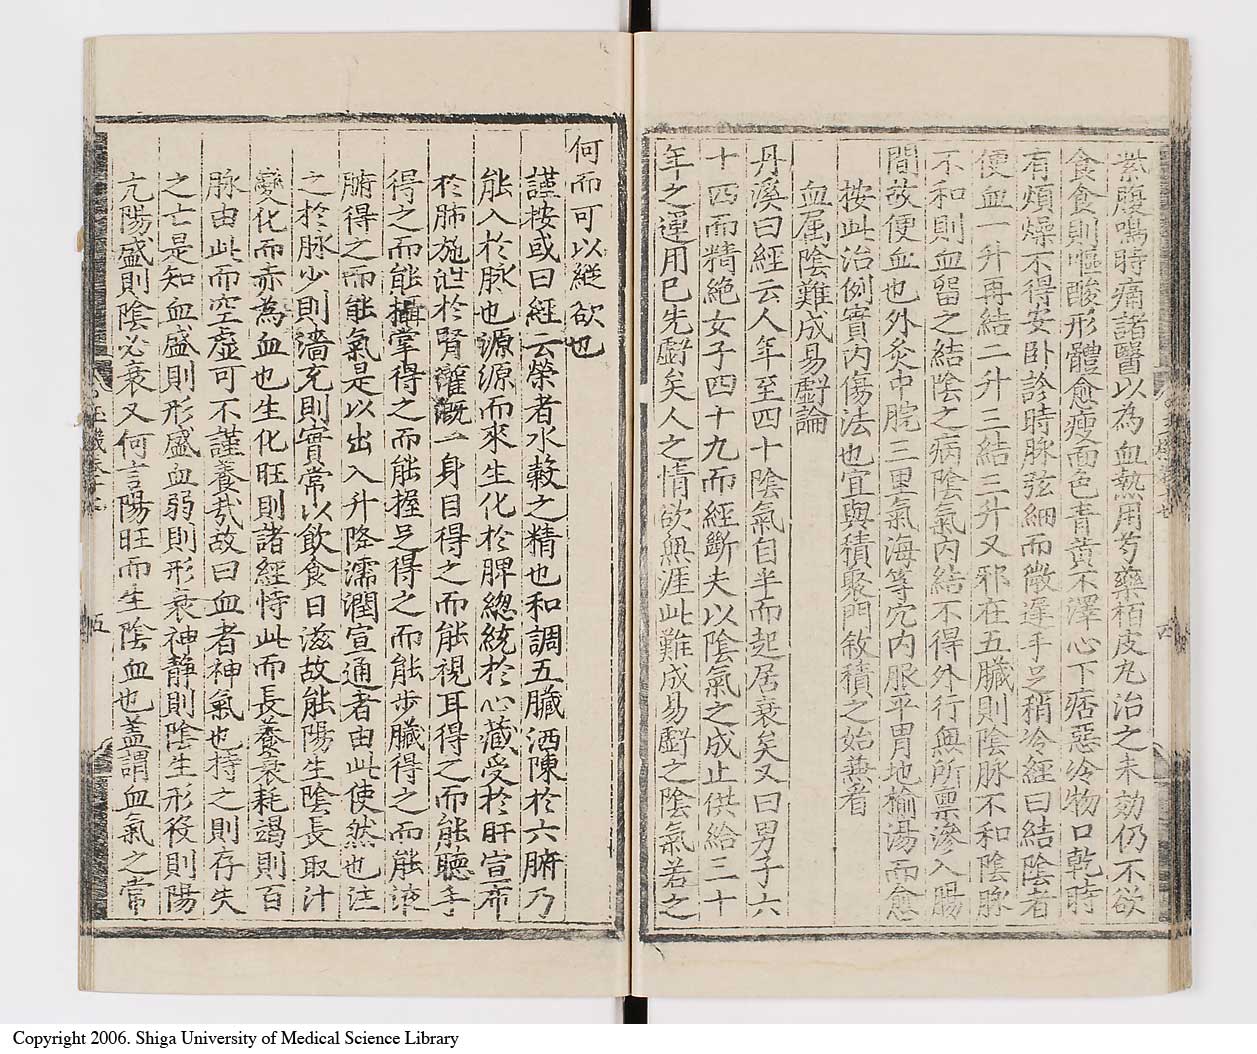 紫腹鳴時痛諸醫以為血熱用芍藥栢皮丸治之未効仍不欲
食食則嘔酸形體愈瘦面色青黃不澤心下痞惡冷物口乾時
有煩燥不得安卧診時脉弦細而微遲手足稍冷經曰結陰者
便血一升再結二升三結三升又邪在五臟則陰脉不和陰脉
不和則血留之結陰之病陰氣內結不得外行無所禀滲入腸
間故便血也外灸中脘三里氣海等穴內服平胃地榆湯而愈
按此治例實內傷法也宜與積聚門敘積之始㕘看
血屬陰難成易虧論
丹溪曰經云人年至四十陰氣自半而起居衰矣又曰男子六
十四而精絕女子四十九而經斷夫以陰氣之成止供給三十
年之運用已先虧矣人之情欲無涯此難成易虧之陰氣若之
何而可以縱欲也
謹按或曰經云榮者水穀之精也和調五臟洒陳於六腑乃
能入於脉也源源而來生化於脾總統於心藏受於肝宣布
於肺施泄於腎灌溉一身目得之而能視耳得之而能聽手
得之而能攝掌得之而能握足得之而能步臟得之而能液
腑得之而能氣是以出入升降濡潤宣通者由此使然也注
之於脉少則濇充則實常以飲食日滋故能陽生陰長取汁
變化而赤為血也生化旺則諸經恃此而長養衰耗竭則百
脉由此而空虛可不謹養哉故曰血者神氣也持之則存失
之亡是知血盛則形盛血弱則形衰神静則陰生形役則陽
亢陽盛則陰必衰又何言陽旺而生陰血也盖謂血氣之常
五
Copyright 2006. Shiga University of Medical Science Library